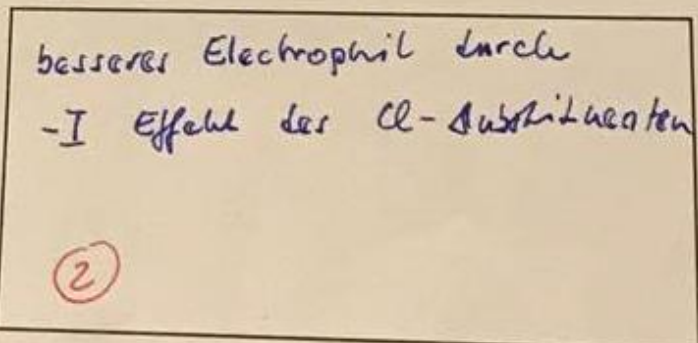 besseres Electrophil durch
-I Effekt des Cl-Substituenten
2